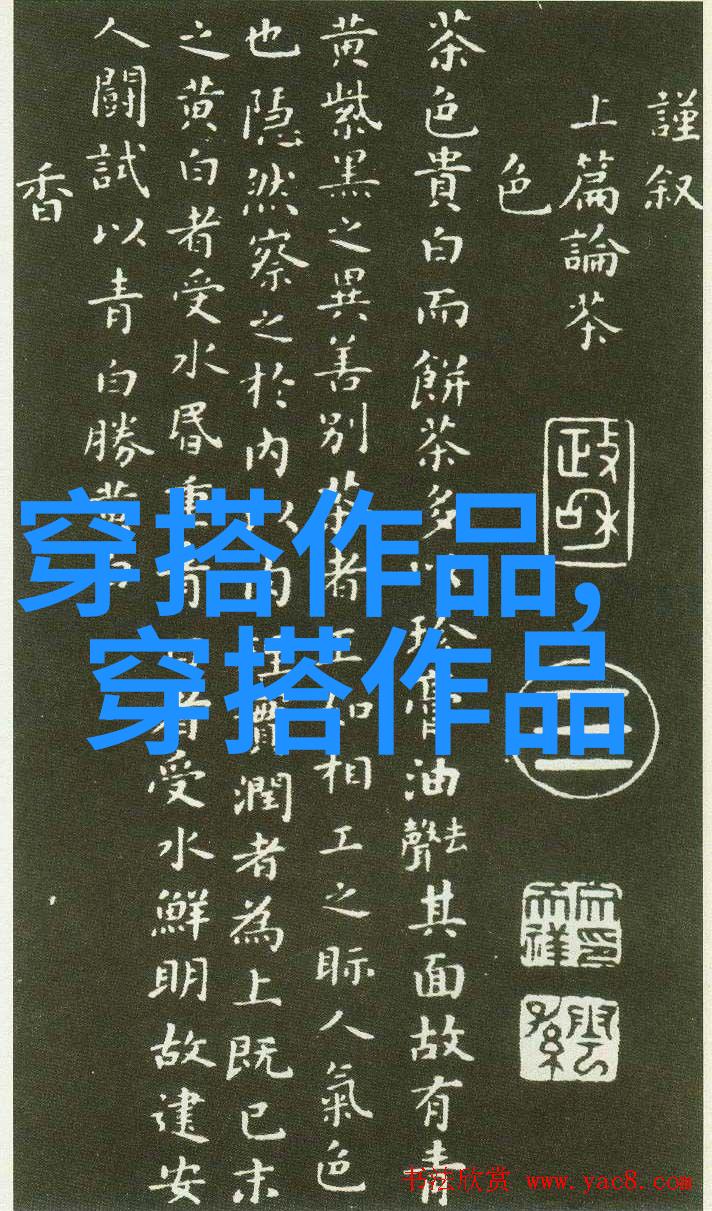 謹叙
上篇論茶
色
政和
茶色貴白而餅茶多以珍膏油去聲其面故有青
黄紫黑之異善别茶者正如相工之眎人氣色
也隠然察之於内以肉實潤者為上既已末
之黄白者受水昬重青者受水鮮明故建安
人闘試以青白勝黄
香
穿搭作品,
穿搭作品
书法欣赏 www.yac8.com